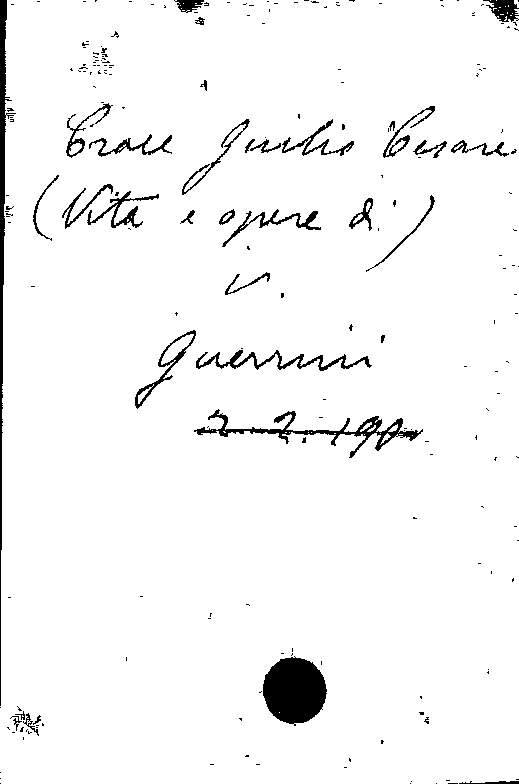 Croce Giulio Cesare
(Vita e opere di)
v.
Guerrini